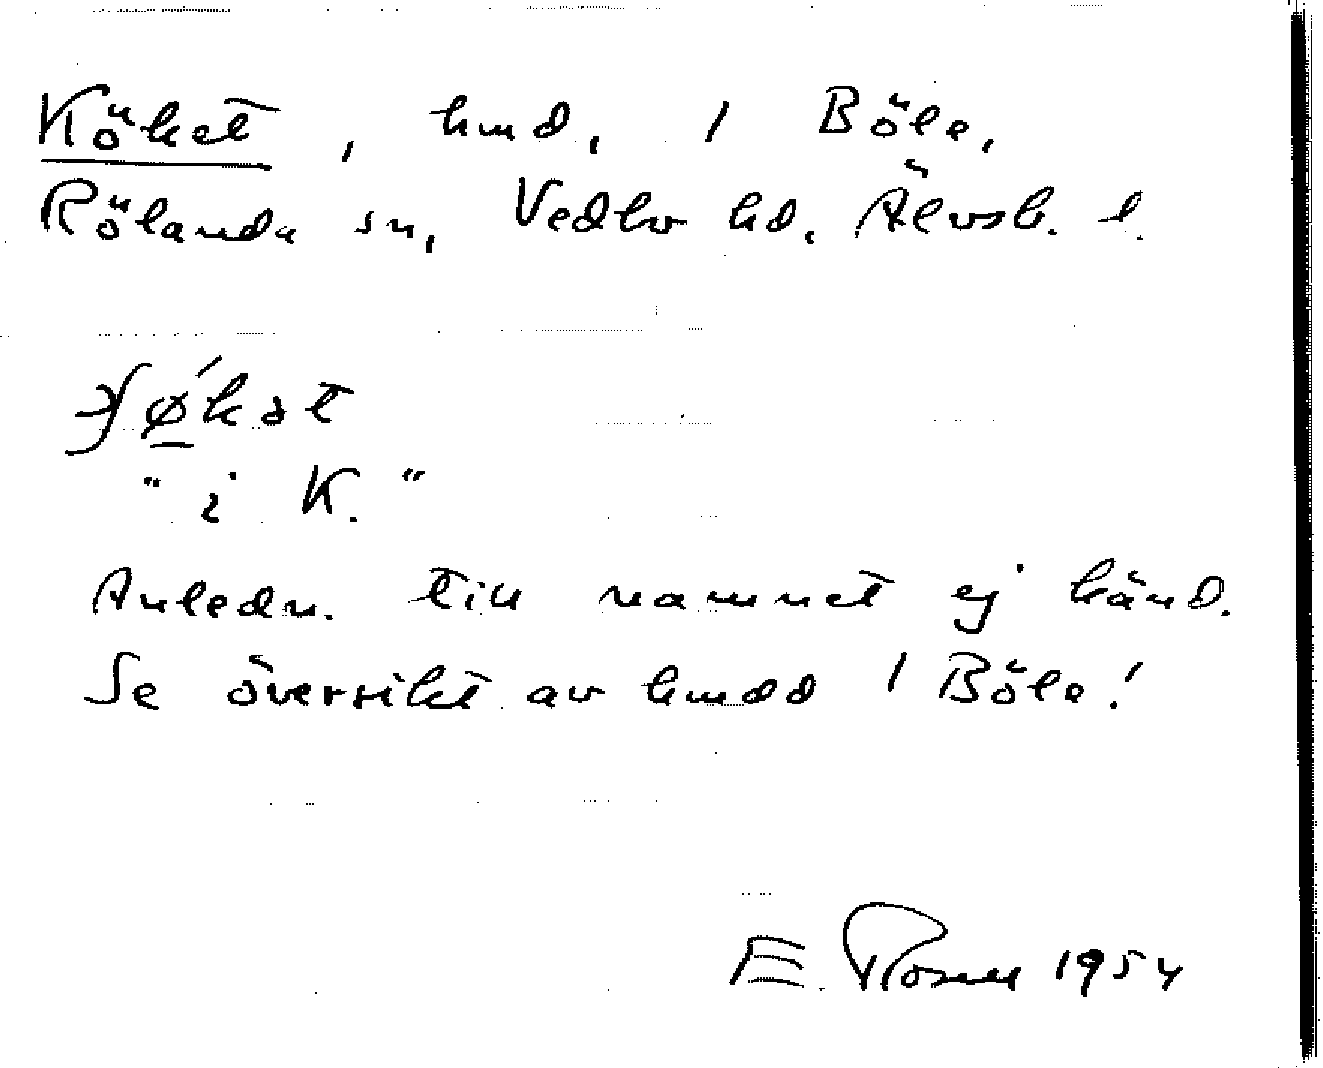 Köket, hmd, 1 Böle,
Rölanda sn, Vedbo hd. Älvsb. l.
ɟøkət
"i K."
Anledn. till namnet ej känd.
Se översikt av hmdd 1 Böle!
E. Rosell 1954